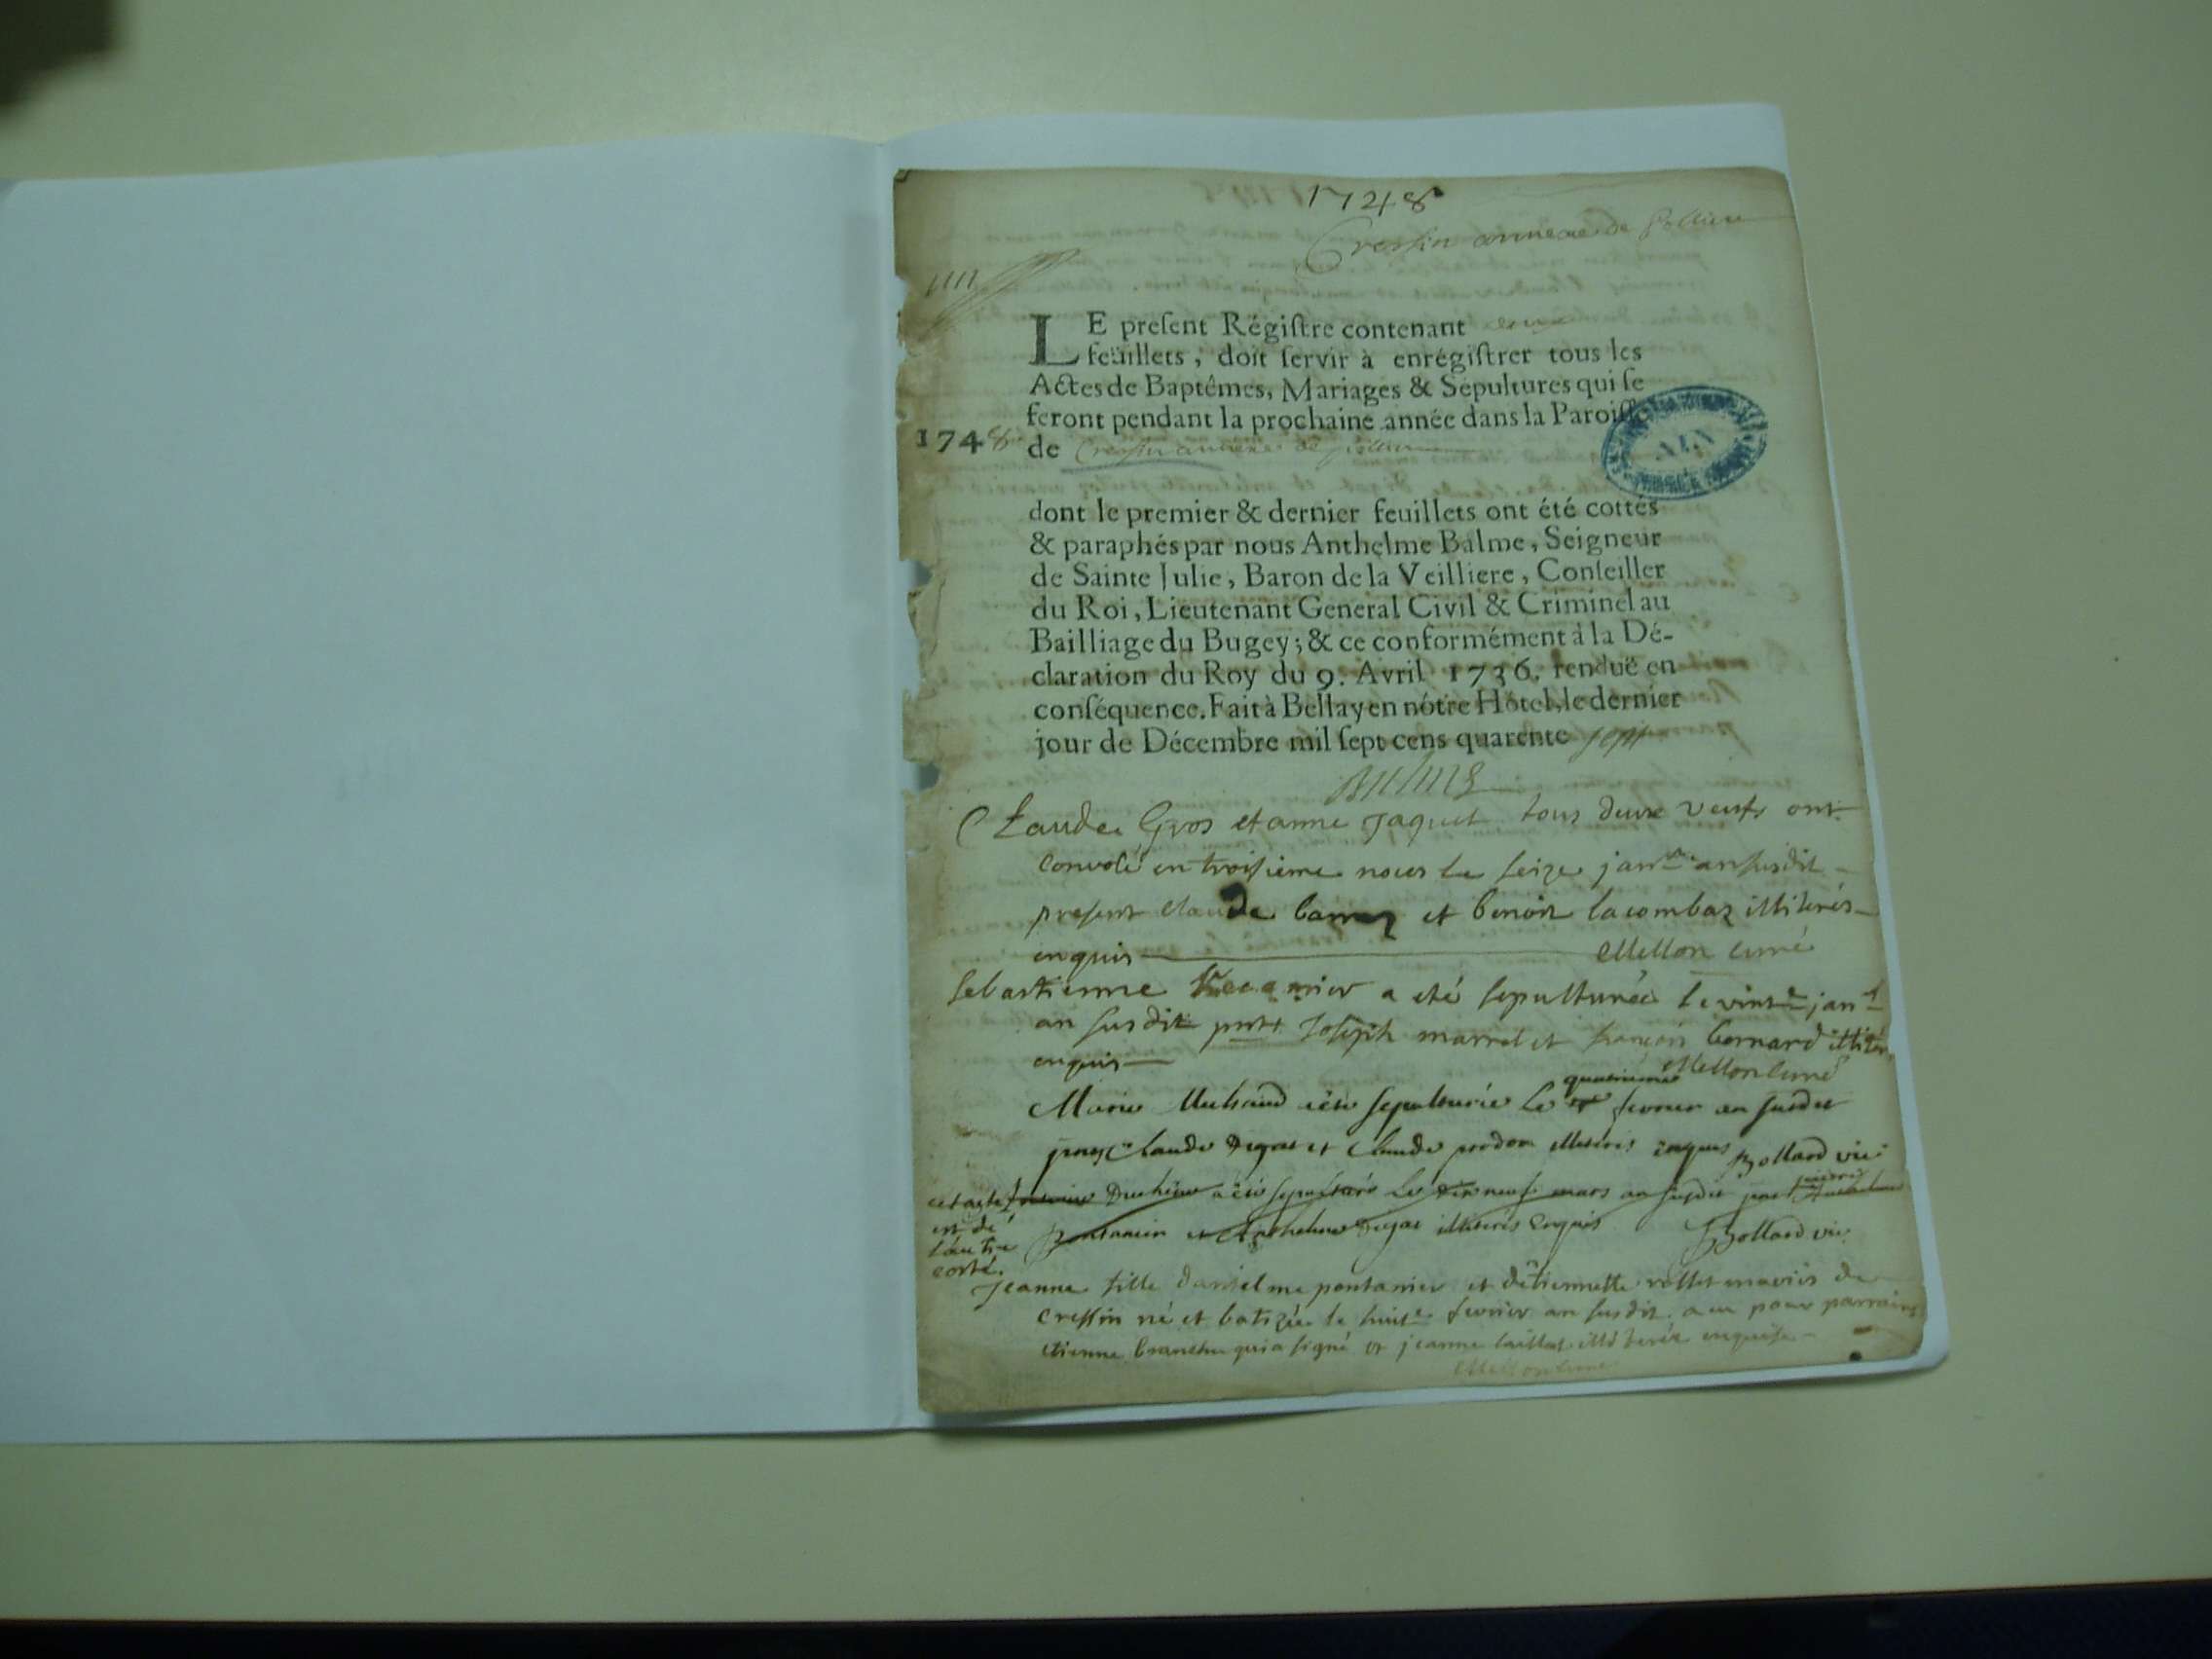 1748
Cressin annexe de Pollieu
LE preſent Régiſtre contenant
feüillets, doit ſervir à enrégiſtrer tous les
Actes de Baptêmes, Mariages & Sépultures qui ſe
feront pendant la prochaine année dans la Paroiſſe
1748 de Cressin annexe de pollieu
AIN
dont le premier & dernier feuillets ont été cottés
& paraphés par nous Anthelme Balme, Seigneur
de Sainte Julie, Baron de la Veilliere, Conſeiller
du Roi, Lieutenant General Civil & Criminel au
Bailliage du Bugey; & ce conformément à la Dé-
claration du Roy du 9. Avril 1736. renduë en
conſéquence. Fait à Bellay en nôtre Hôtel, le dernier
jour de Décembre mil ſept cens quarente sept
Claude Gros et anne Jaquet tous deux veufs ont
convolé en troisieme noces le seize janr an susdit
present claude et benoit lacombaz illiterés
enquis Mellon curé
sebastienne Recamier a eté sepulturée le vint janr
an susdit pnts Joseph marret et françois bernard illiter
enquis Mellon curé
Marie Michaud a été sepulturée Le quatrieme fevrier an susdit
Claude Degat et Claude prodon illiteris enquis Bollard vic
cet acte est de l'autre costé.
Duchene a été sepulturé Le dix neuf mars an susdit
pontanier et Anthelme Degat illiterés Enquis Bollard vic.
Jeanne fille d'antelme pontanier et d'etiennette rollet mariés de
cressin né et batizée le huit fevrier an susdit a eu pour parrain
etienne branche qui a signé et jeanne illiterée enquise
Mellon curé